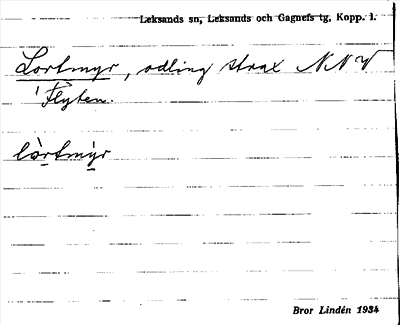 Leksands sn, Leksands och Gagnefs tg, Kopp. l.
Lortmyr, odling strax NNV
Flyten.
lòrtmýr
Bror Lindén 1934